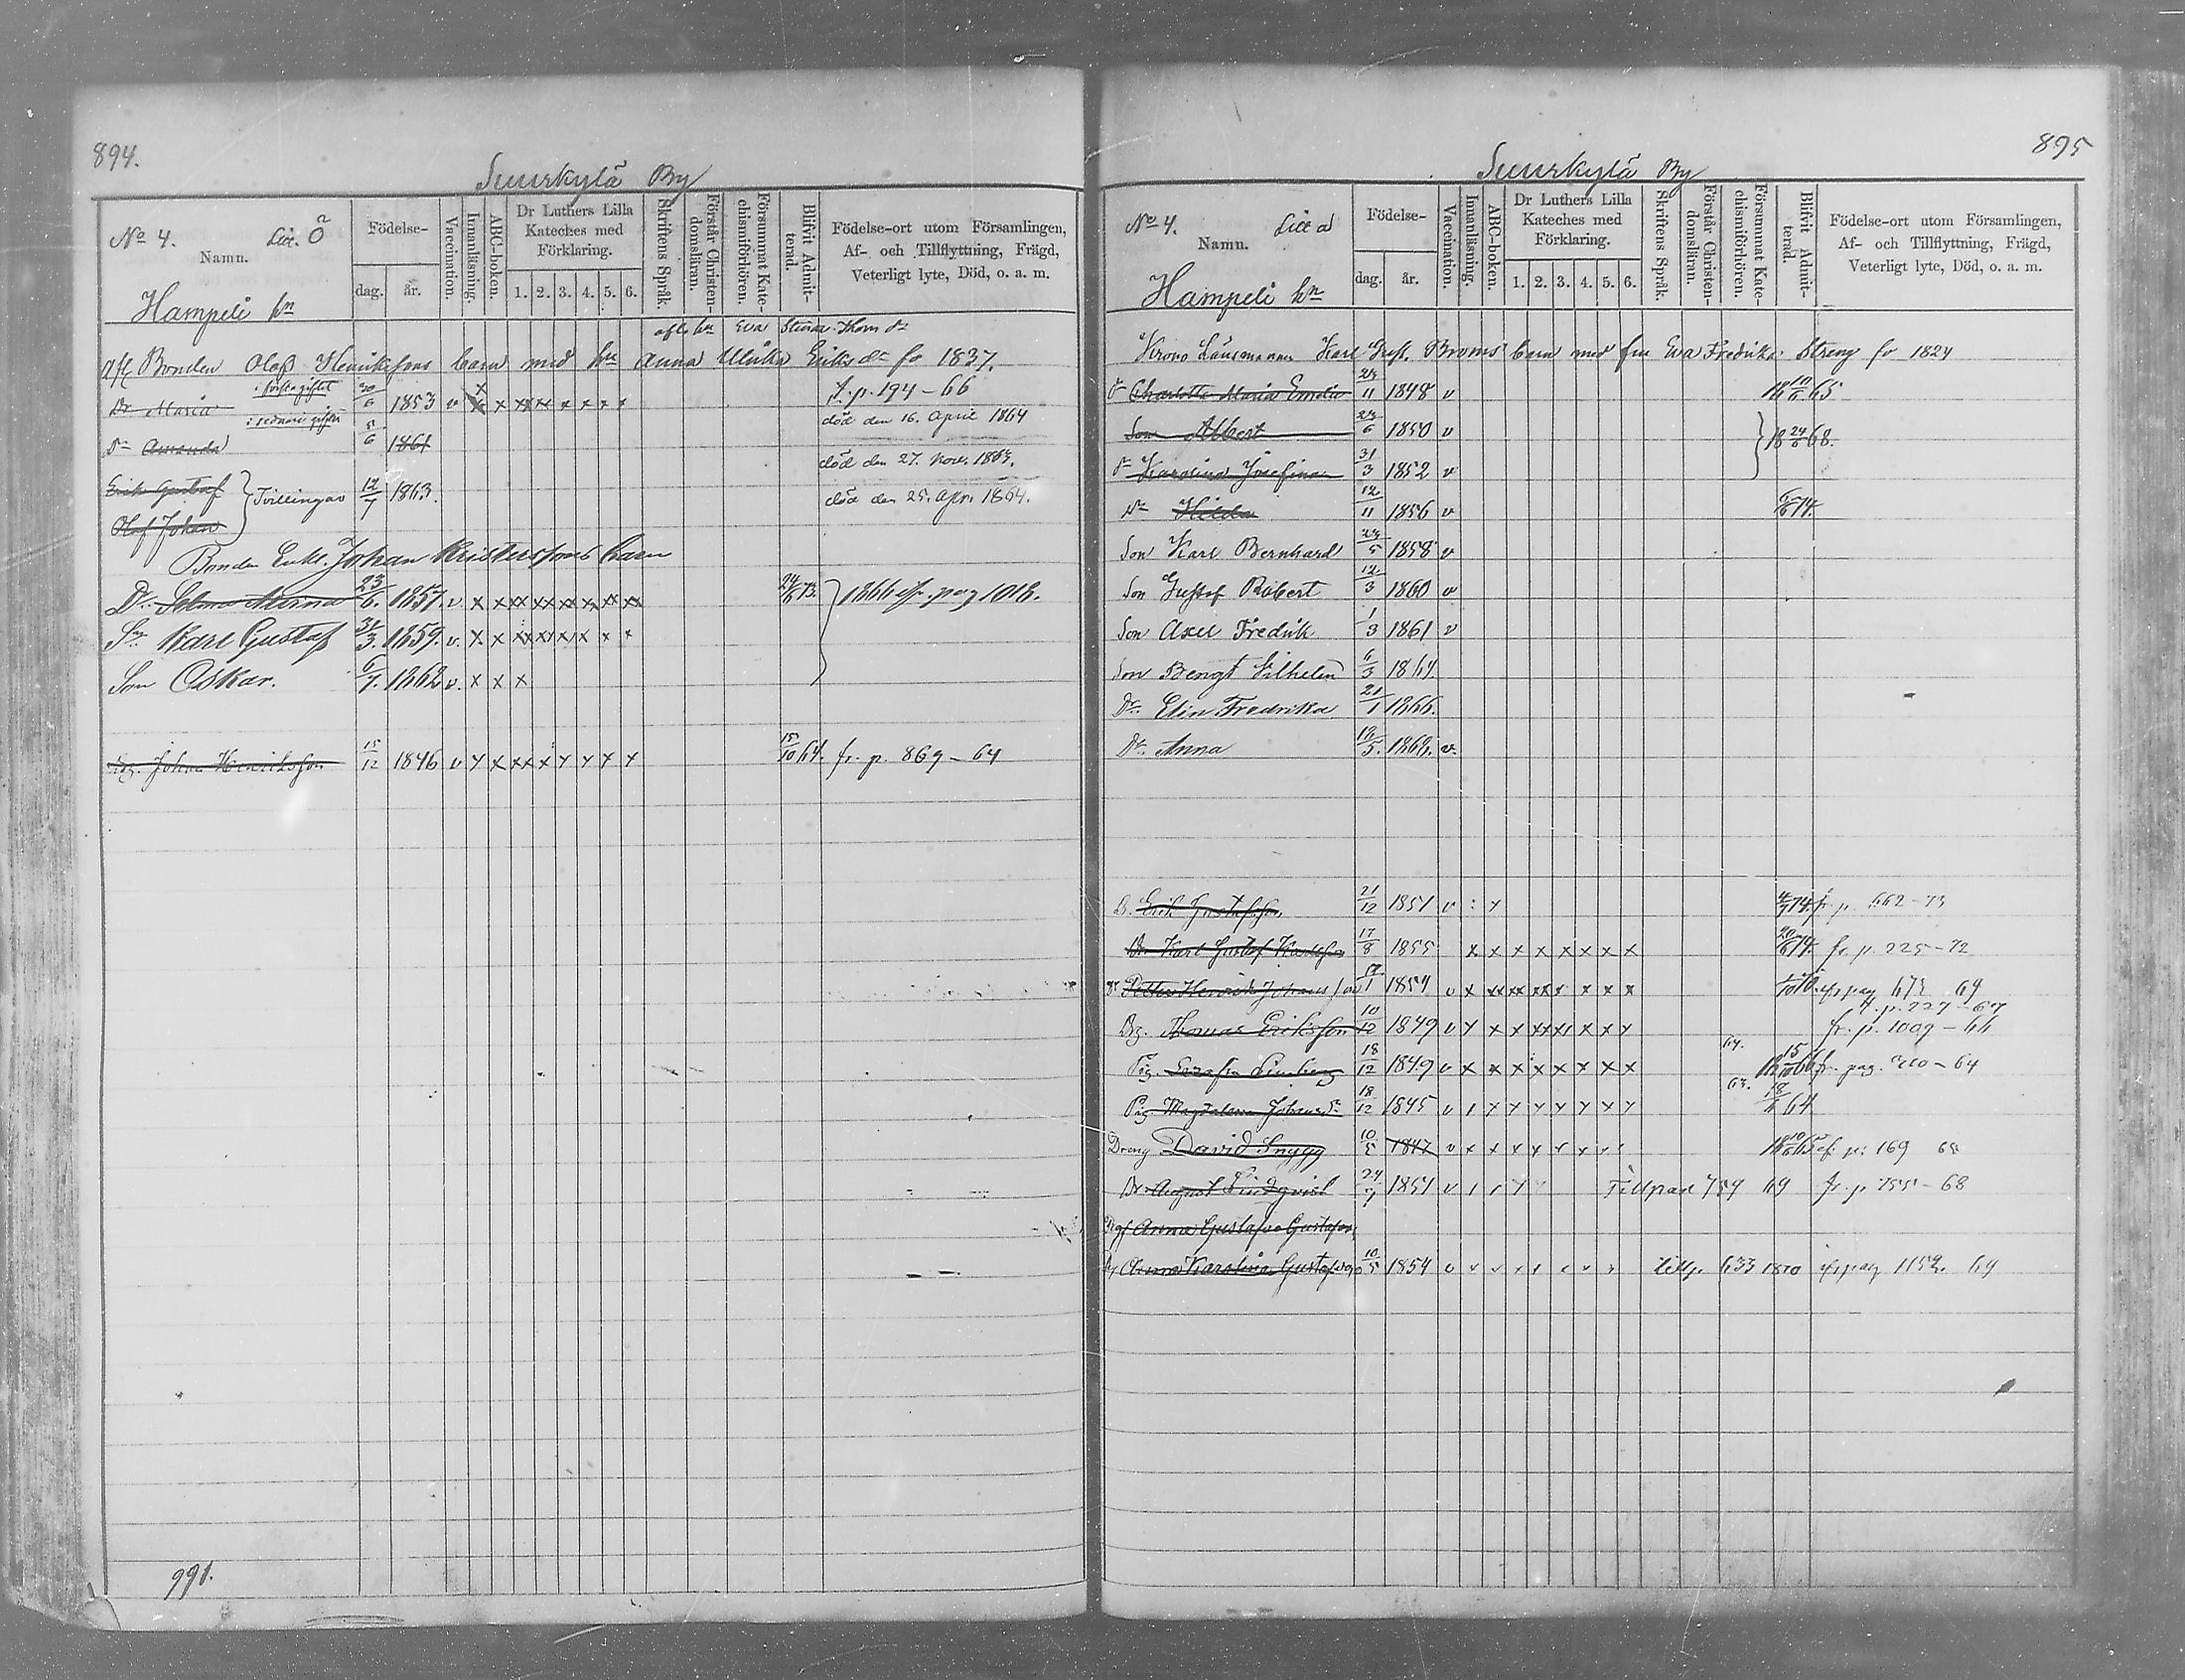 894.
Suurkylä By
No 4. Litt. Ö
Namn.
Hampeli hn
Födelse-
dag. år.
Vaccination.
Innanläsning.
ABC-boken.
Dr Luthers Lilla Kateches med Förklaring.
1. 2. 3. 4. 5. 6.
Skriftens Språk.
Förstår Christendomsläran.
Försummat Katechismiförhören.
Blifvit Admitterad.
Födelse-ort utom Församlingen, Af- och Tillflyttning, Frägd, Veterligt lyte, Död, o. a. m.
afl. hn Eva Stina Thom dr
Bonden Olof Henrikssons barn med hu Anna Ulrika Eriks dr fö 1837.
i förra giftet
Dr Maria 20/6 1853 v x x xx xx x x x x t. p. 194-66
i sednare giftet
död den 16. April 1864
Dr Amanda 5/6 1861
död den 27. Nov. 1863.
Erik Gustaf } Tvillingar 12/7 1863.
död den 25. Apr. 1864.
Olof Johan
Bonden Enkl. Johan Kristerssons barn
Dr. 23/6. 1857. v. x x xx xx xx xx xx xx 24/6 73. } 1866 pag 1018.
Sn Karl Gustaf 31/3. 1859. v. x x xx xx x x x x
Son Oskar. 6/7. 1862 v. x x x
Drg. Johan Henriksson 15/12 1846 v y x xx x y y y y 15/10 64. fr. p. 869-64
991.
895
Suurkylä By
No 4. Litt a
Namn.
Hampeli hn
Födelse-
dag. år.
Vaccination.
Innanläsning.
ABC-boken.
Dr Luthers Lilla Kateches med Förklaring.
1. 2. 3. 4. 5. 6.
Skriftens Språk.
Förstår Christendomsläran.
Försummat Katechismiförhören.
Blifvit Admitterad.
Födelse-ort utom Församlingen, Af- och Tillflyttning, Frägd, Veterligt lyte, Död, o. a. m.
Krono Länsmannen Karl Gust. Broms barn med fru Eva Fredrika Streng fö 1824
dr Charlotta Maria Emilia 11 1848 v 65
Son Albert 6 1850 v } 18 24/6 68.
dr Karolina Josefina 31/3 1852 v
Dr Hilda 12/11 1856 v 74.
Son Karl Bernhard 5 1858 v
Son Gustaf Robert 12/3 1860 v
Son Axel Fredrik 1/3 1861 v
Son Bengt Vilhelm 6/3 1864.
Dr. Elin Fredrika 21/1 1866.
Dr. Anna 5. 1868. v.
Dr. Erik Gustafsson 21/12 1851 v : y 74. fr. p. 662-73
Dr Karl Gustaf Karlsson 17/8 1855 x x x x x x x x 20/6 74. fr. p. 225-72
Petter Henrik Johansson 1854 v x xx xx xx x x x x pag 69
t. p. 227-67
Drg. Thomas Eriksson 10/12 1849 v y x x xx xx x x y fr. p. 1009-66
64.
Pig. 18/12 1849 v x x x x x x x x 15/10 fr. pag. -64
63.
Pig. Magdalena Johans dr 18/12 1845 v y y y y y y y 64
Dreng David Snygg 10/5 1847 v x x x y x x p. 169 68
Dr August Lindqvist 24/7 1851 v Till pag 759 69 fr. p 755-68
Anna Gustafva Gustafsson
Anna Karolina Gustafsdr 10/5 1854 v till p. 633 1870 pag 1152. 69